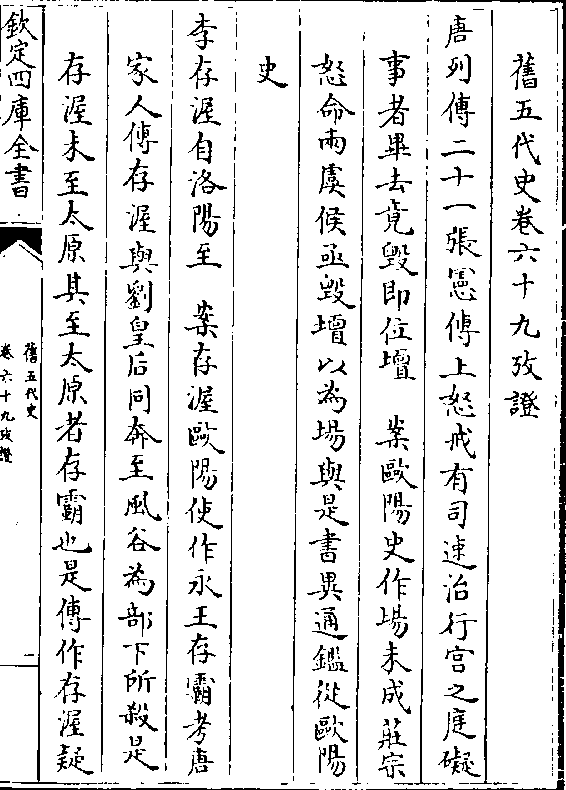 舊五代史卷六十九攷證
唐列傳二十一張憲傳上怒戒有司速治行宫之庭礙
事者畢去竟毁即位壇　案歐陽史作場未成莊宗
怒命兩虞候亟毁壇以為場與是書異通鑑從歐陽
史
李存渥自洛陽至　案存渥歐陽使作永王存霸考唐
家人傳存渥與劉皇后同奔至風谷為部下所殺是
存渥未至太原其至太原者存霸也是傳作存渥疑
欽定四庫全書
舊五代史
卷六十九攷證
一